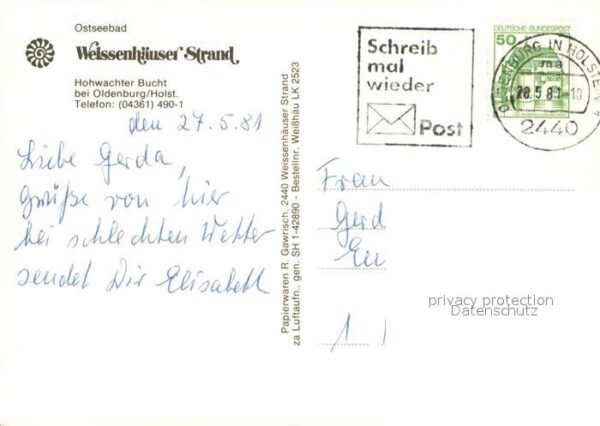 Ostseebad
Weissenhäuser Strand
Hohwachter Bucht
bei Oldenburg/Holst.
Telefon: (04361) 490-1
den 27.5.81
Liebe Gerda,
Grüße von hier
bei schlechten Wetter
sendet Dir Elisabeth
Papierwaren R. Gawrisch, 2440 Weissenhäuser Strand
za Luftaufn., gen. SH 1-42890 - Bestellnr. Weißhäu LK 2523
Schreib
mal
wieder
Post
DEUTSCHE BUNDESPOST
50
OLDENBURG IN HOLSTEIN 1
ma
28.5.81-10
2440
Frau
Gerd
Eu
1
privacy protection
Datenschutz